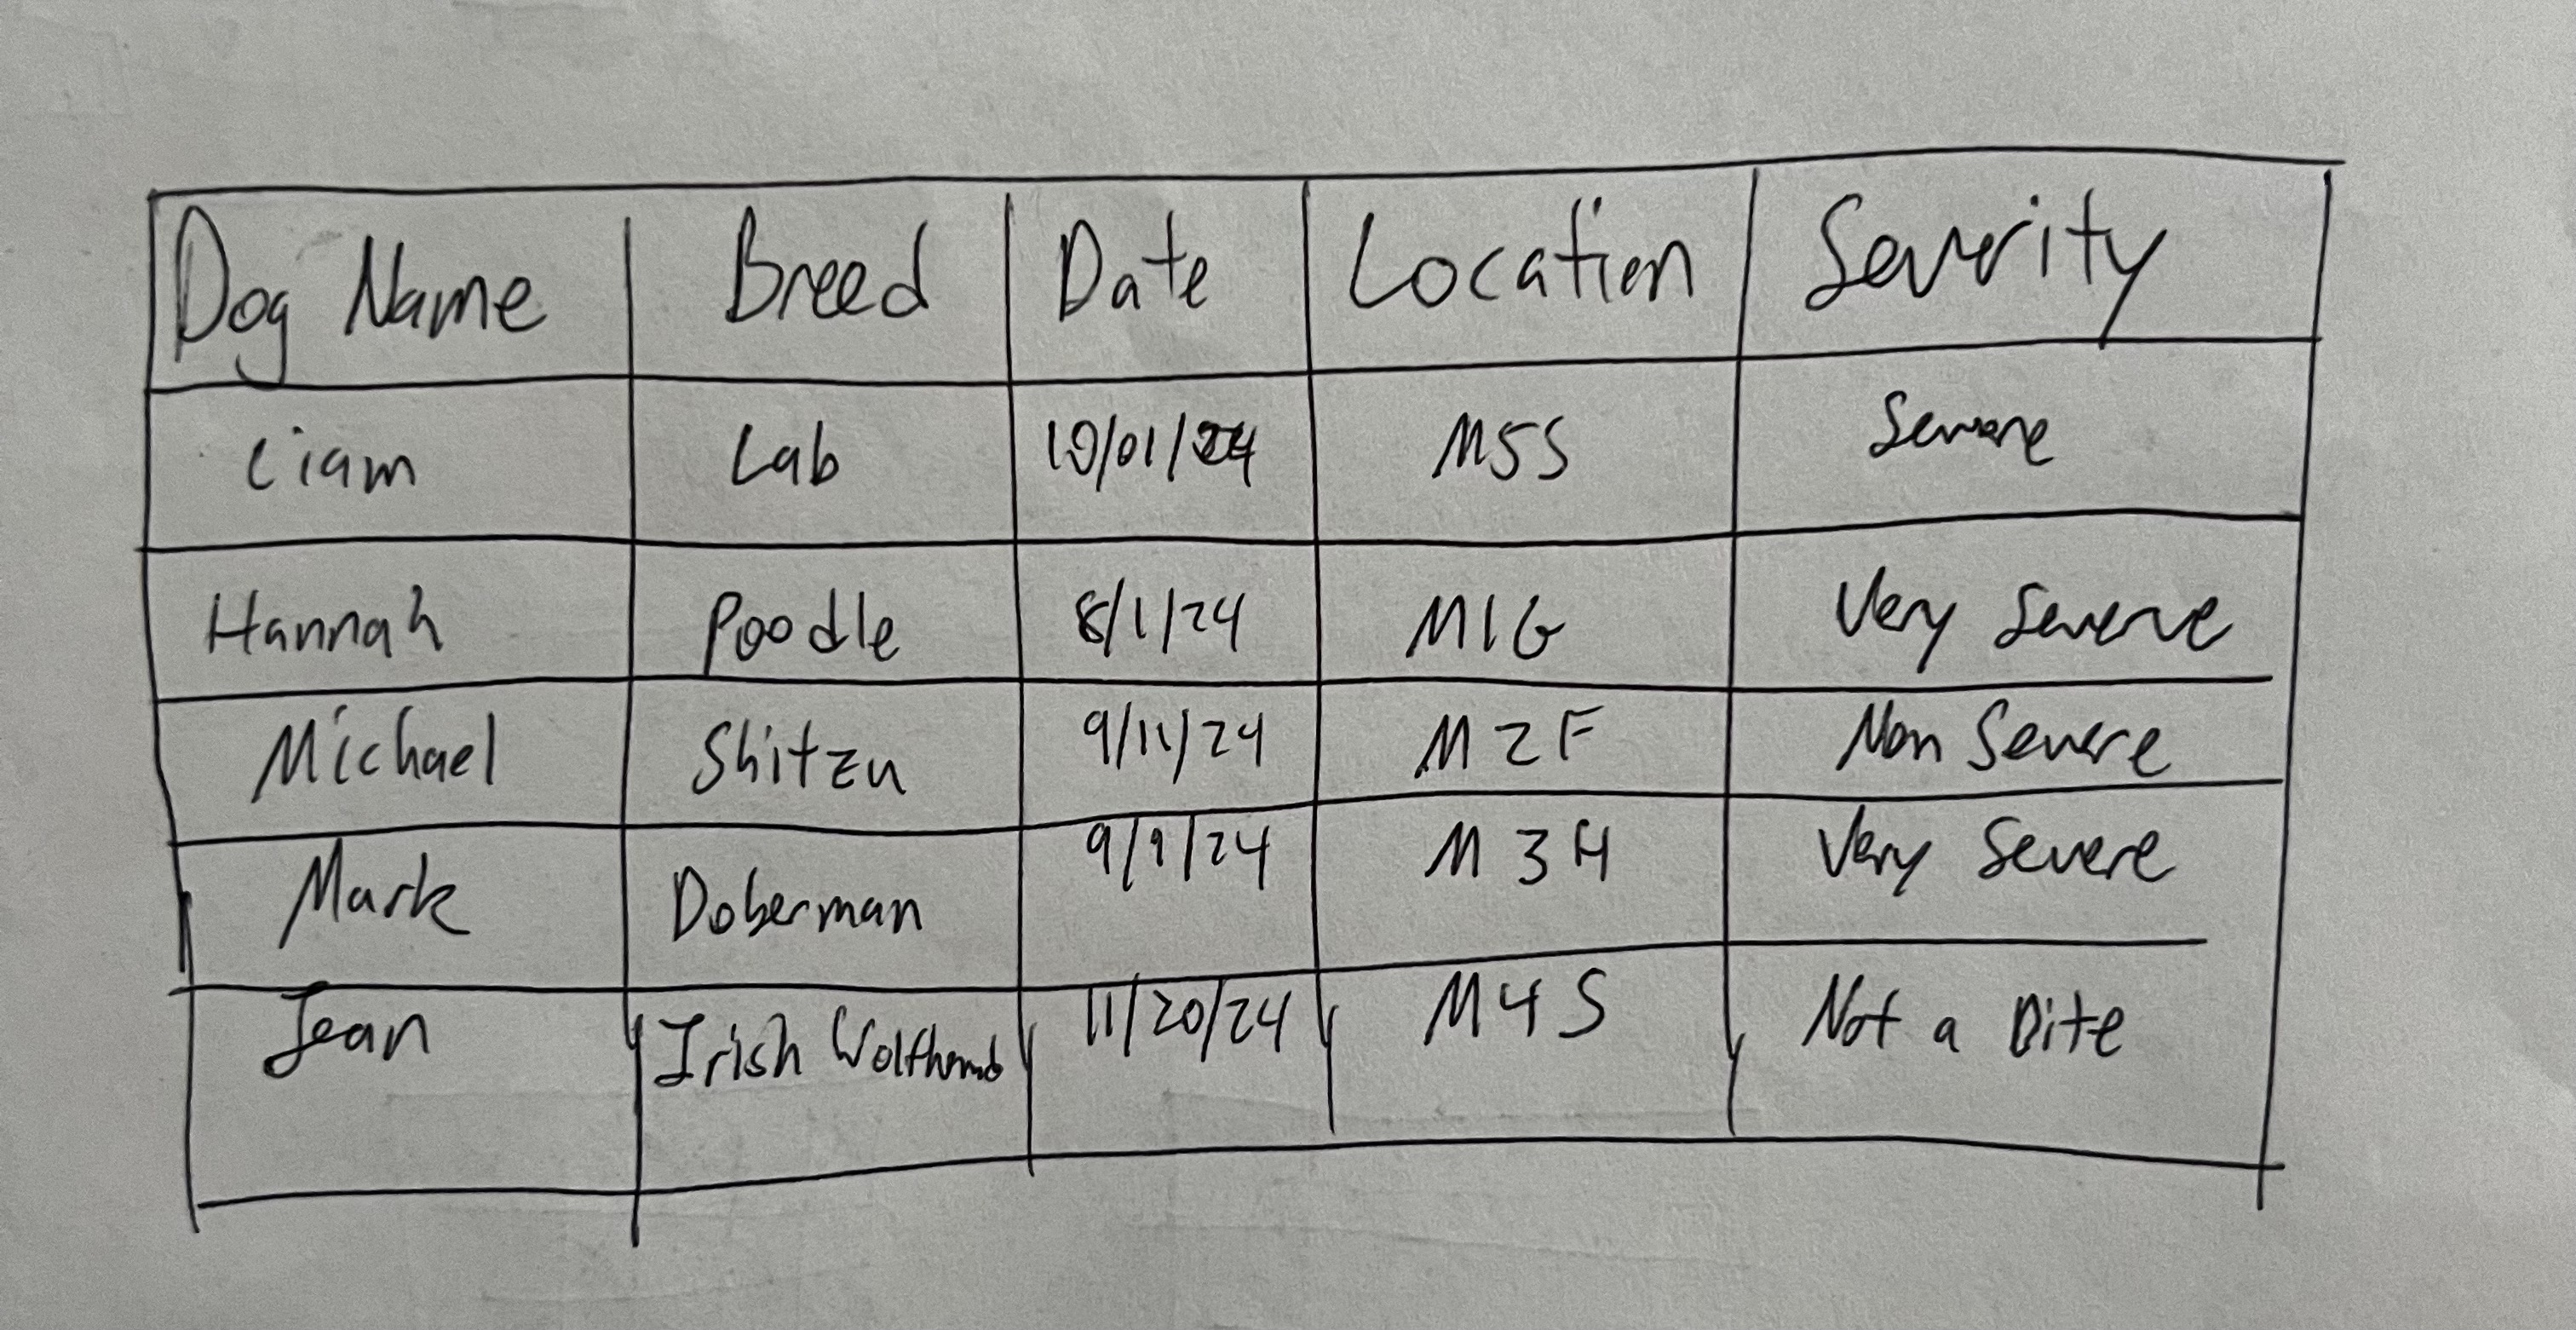 Dog Name Breed Date Location Severity
Liam Lab 10/01/24 M5S Severe
Hannah Poodle 8/1/24 M1G Very Severe
Michael Shitzu 9/11/24 M2F Non Severe
Mark Doberman 9/9/24 M3H Very Severe
Jean Irish Wolfhound 11/20/24 M4S Not a Bite